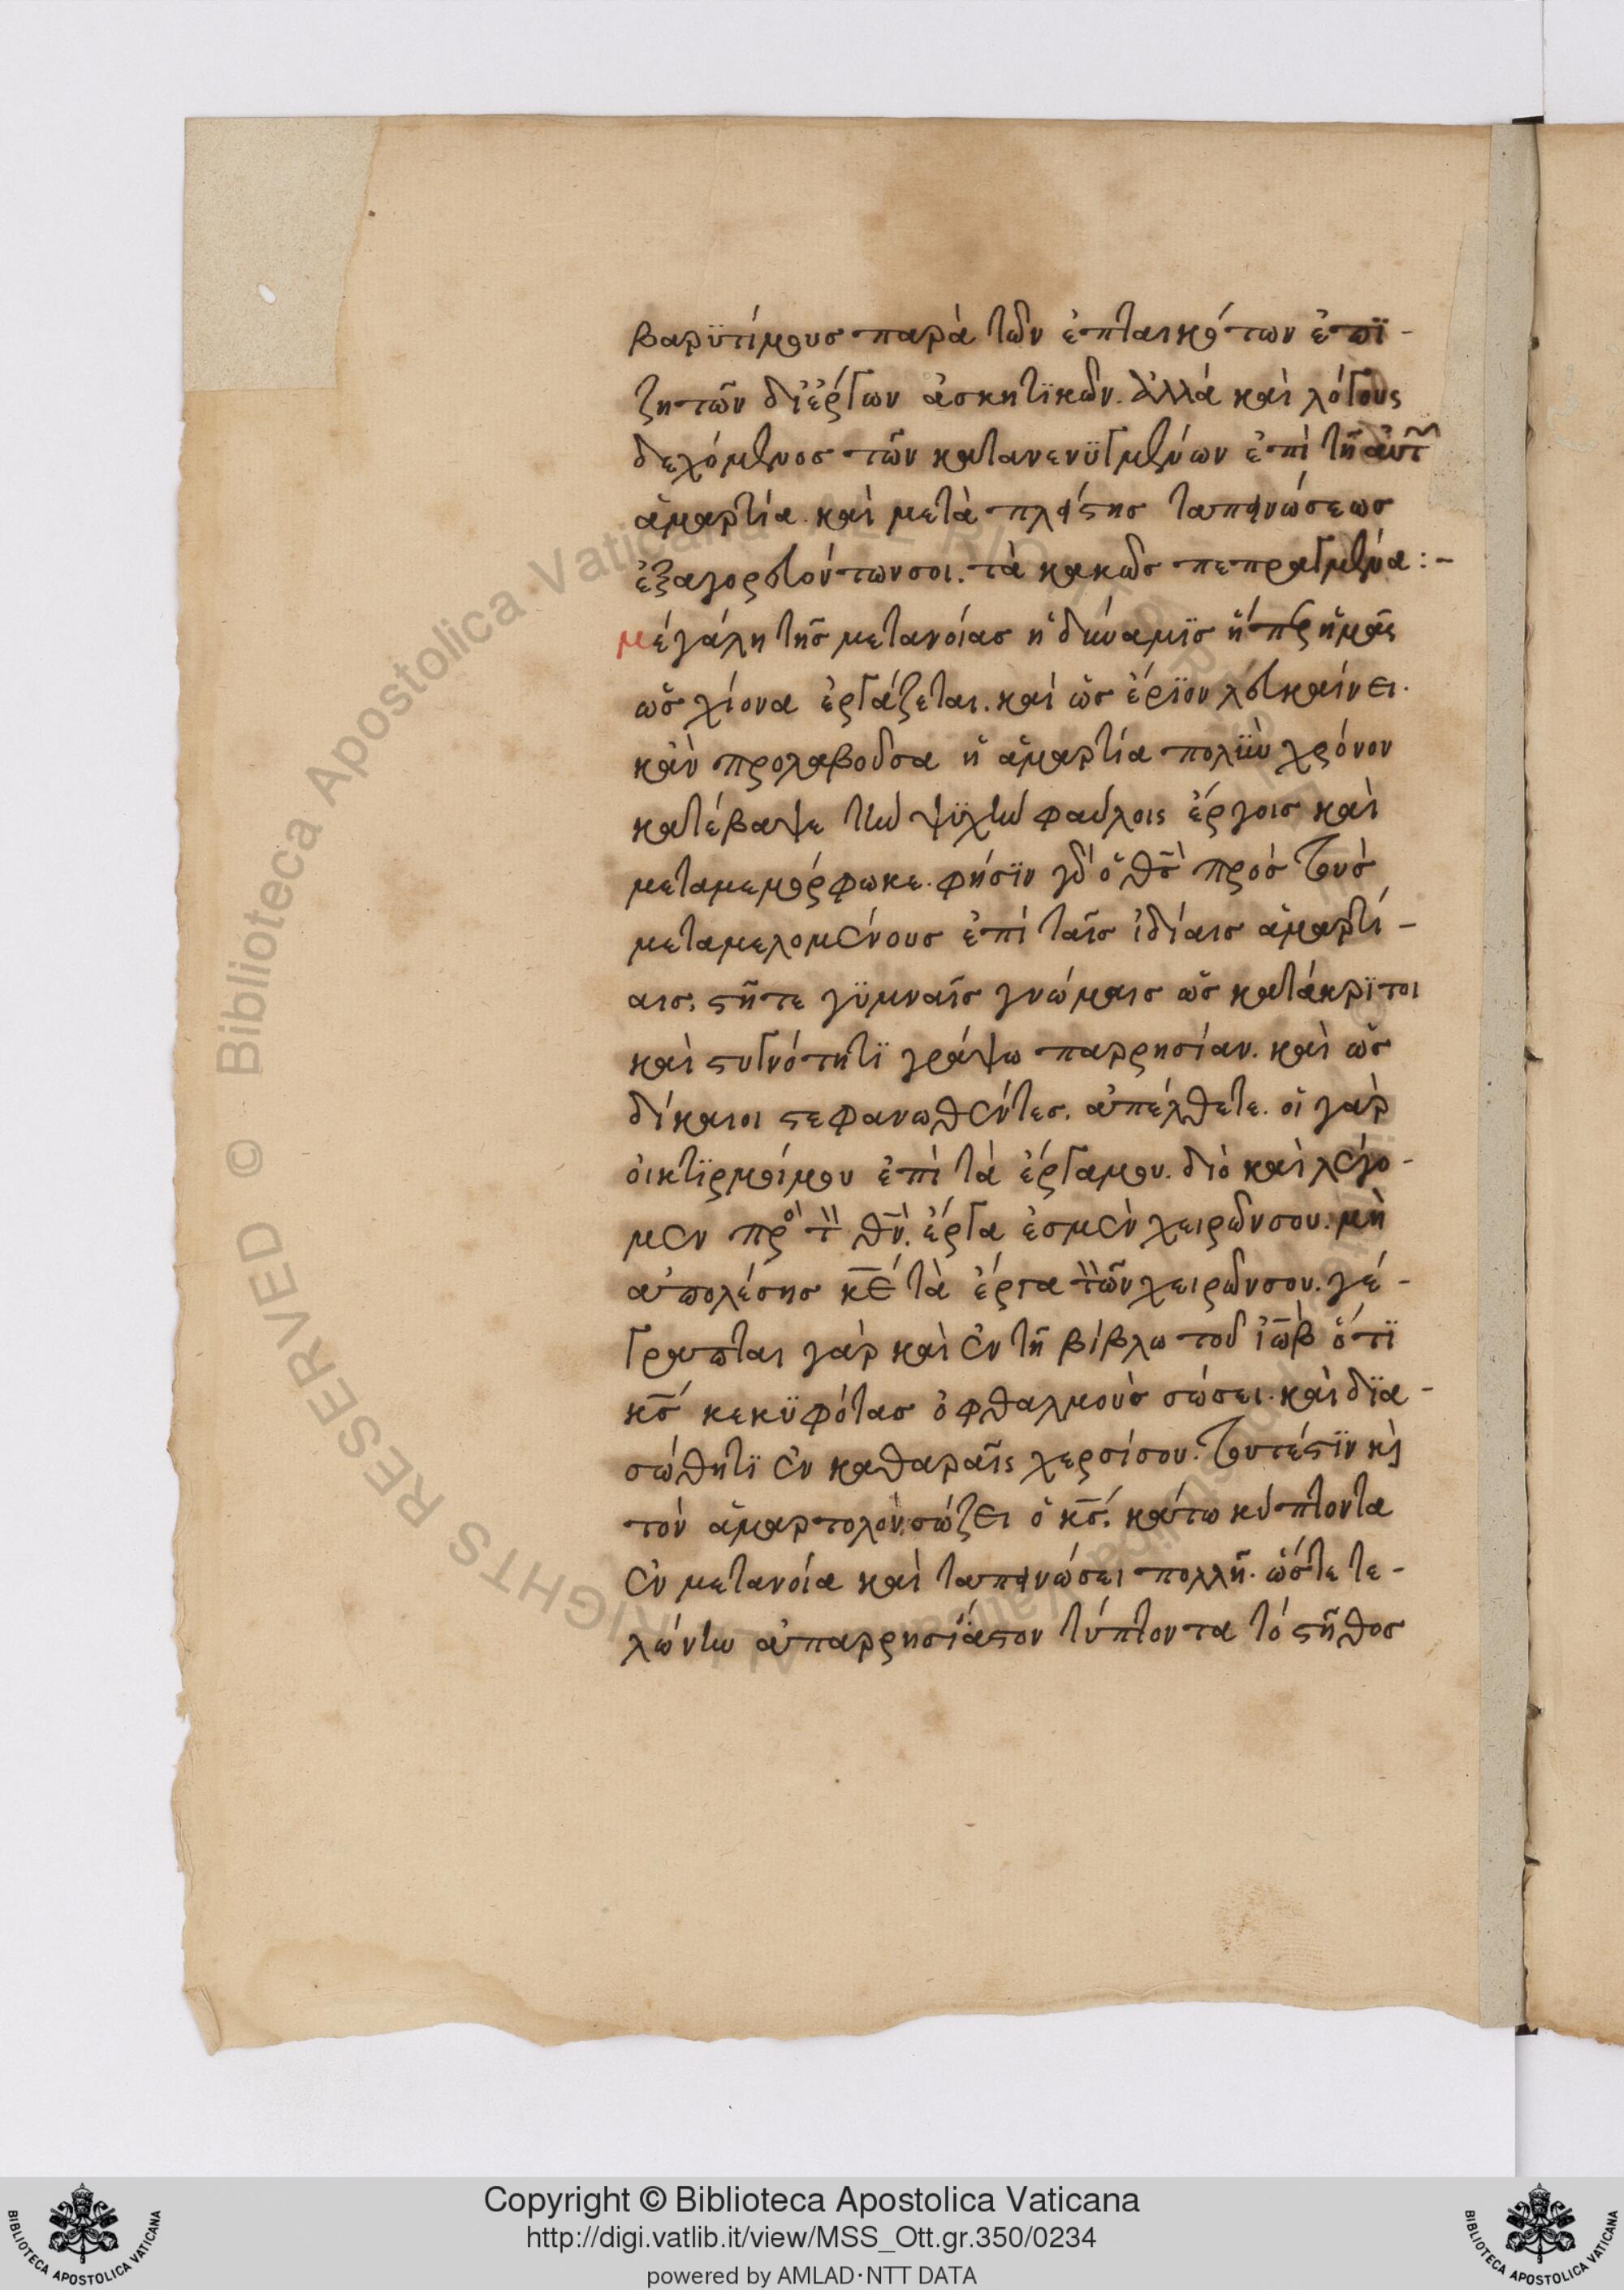 βαρϋτίμους παρὰ τῶν ἐπταικότων ἐπϊ-
ζητῶν δι ἔργων ἀσκητϊκῶν. ἀλλά καὶ λόγους
δεχόμενος τῶν κατανενϋγμένων ἐπὶ τῆ αὐτ
ἁμαρτία. καὶ μετὰ πλείστης ταπεινώσεως
ἐξαγορευόντων σοι. τὰ κακῶς πεπραγμένα:-
μέγάλη τῆς μετανοίας ἡ δύναμϊς ἥπερ ἡμᾶς
ὡς χίονα ἐργάζεται. καὶ ὡς ἔρϊον λευκαίνει.
κἂν προλαβοῦσα ἡ ἁμαρτία πολϋν χρόνον
κατέβαψε τὴν ψϋχὴν φαύλοις ἔργοις καὶ
μεταμεμόρφωκε. φήσϊν γὰρ ὁ θς̄ πρὸς τοὺς
μεταμελομένους ἐπὶ ταῖς ἰδίαις ἁμαρτί-
αις. στῆτε γϋμναῖς γνώμαις ὡς κατάκρϊτοι
καὶ στυγνότητϊ γράψω παρρησίαν. καὶ ὡς
δίκαιοι στεφανωθέντες. ἀπέλθετε. οἱ γὰρ
οἰκτϊρμοί μου ἐπὶ τὰ ἔργα μου. διὸ καὶ λέγο-
μεν πρὸ τ θν̄. ἔργα ἐσμὲν χειρῶν σου. μὴ
ἀπολέσης κε̄ τὰ ἔργα τῶν χειρῶν σου. γέ-
γραπται γὰρ καὶ ἐν τῆ βίβλω τοῦ ἰὼβ ὅτϊ
κς̄ κεκϋφότας ὀφθαλμοὺς σώσει. καὶ δϊα-
σώθητϊ ἐν καθαραῖς χερσί σου. τουτέστϊν κὶ
τὸν ἁμαρτολὸν σώζει ὁ κς̄. κάτω κύπτοντα
ἐν μετανοία καὶ ταπεινώσει πολλῆ. ὥστε τε-
λώνην ἀπαρρησϊάστον τύπτοντα τὸ στῆθος
Copyright © Biblioteca Apostolica Vaticana
http://digi.vatlib.it/view/MSS_Ott.gr.350/0234
powered by AMLAD·NTT DATA
BIBLIOTECA APOSTOLICA VATICANA
BIBLIOTECA APOSTOLICA VATICANA
© Biblioteca Apostolica Vaticana ALL RIGHTS RESERVED